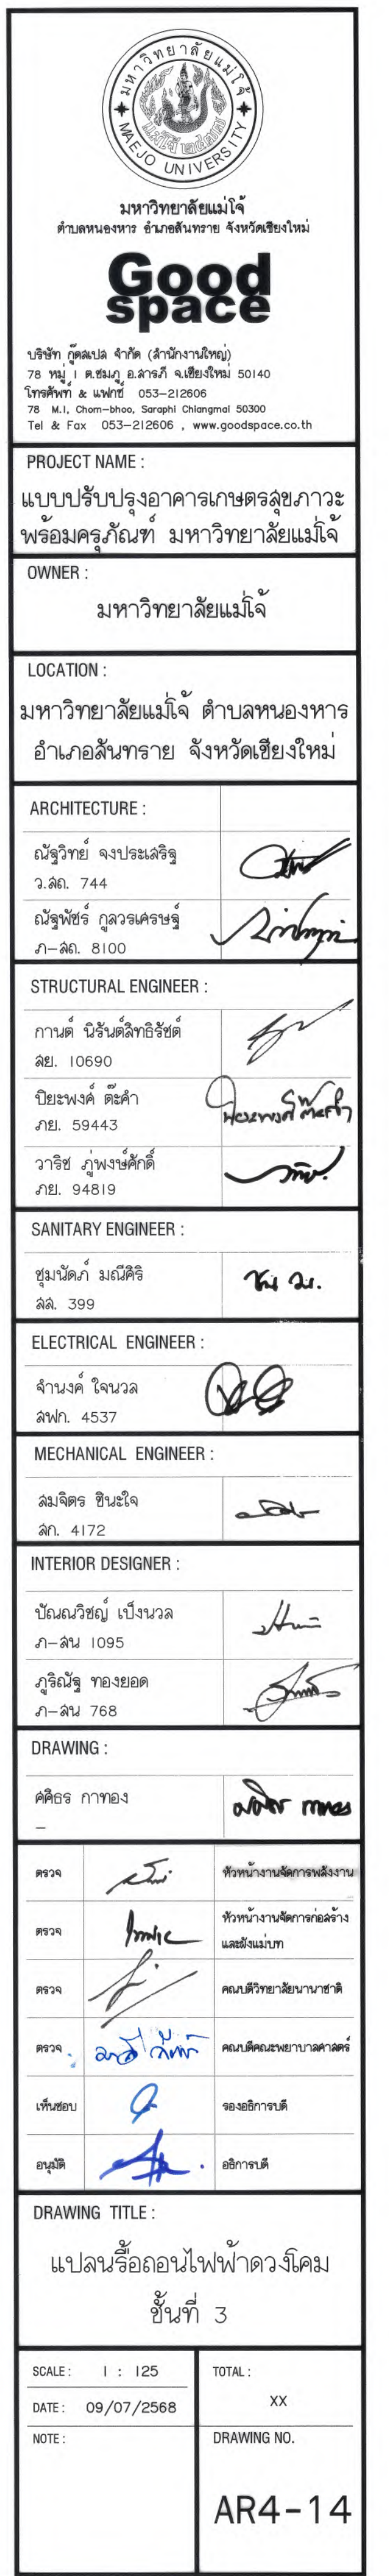 มหาวิทยาลัยแม่โจ้
MAEJO UNIVERSITY
มหาวิทยาลัยแม่โจ้
ตำบลหนองหาร อำเภอสันทราย จังหวัดเชียงใหม่
Good
space
บริษัท กู๊ดสเปส จำกัด (สำนักงานใหญ่)
78 หมู่ 1 ต.ชมภู อ.สารภี จ.เชียงใหม่ 50140
โทรศัพท์ & แฟกซ์ 053-212606
78 M.1, Chom-bhoo, Saraphi Chiangmai 50300
Tel & Fax 053-212606 , www.goodspace.co.th
PROJECT NAME :
แบบปรับปรุงอาคารเกษตรสุขภาวะ
พร้อมครุภัณฑ์ มหาวิทยาลัยแม่โจ้
OWNER :
มหาวิทยาลัยแม่โจ้
LOCATION :
มหาวิทยาลัยแม่โจ้ ตำบลหนองหาร
อำเภอสันทราย จังหวัดเชียงใหม่
ARCHITECTURE :
ณัฐวิทย์ จงประเสริฐ
ว.สถ. 744
ณัฐพัชร์ กูลวรเศรษฐ์
ภ-สถ. 8100
STRUCTURAL ENGINEER :
กานต์ นิรันต์สิทธิรัชต์
สย. 10690
ปิยะพงค์ ต๊ะคำ
ภย. 59443
วาริช ภู่พงษ์ศักดิ์
ภย. 94819
SANITARY ENGINEER :
ชุมนัดภ์ มณีศิริ
สส. 399
ELECTRICAL ENGINEER :
จำนงค์ ใจนวล
สฟก. 4537
MECHANICAL ENGINEER :
สมจิตร ชินะใจ
สก. 4172
INTERIOR DESIGNER :
ปัณณวิชญ์ เป็งนวล
ภ-สน 1095
ภูริณัฐ ทองยอด
ภ-สน 768
DRAWING :
ศศิธร กาทอง
-
ตรวจ หัวหน้างานจัดการพลังงาน
ตรวจ หัวหน้างานจัดการก่อสร้าง
และผังแม่บท
ตรวจ คณบดีวิทยาลัยนานาชาติ
ตรวจ คณบดีคณะพยาบาลศาสตร์
เห็นชอบ รองอธิการบดี
อนุมัติ อธิการบดี
DRAWING TITLE :
แปลนรื้อถอนไฟฟ้าดวงโคม
ชั้นที่ 3
SCALE : 1 : 125
TOTAL :
XX
DATE : 09/07/2568
NOTE :
DRAWING NO.
AR4-14